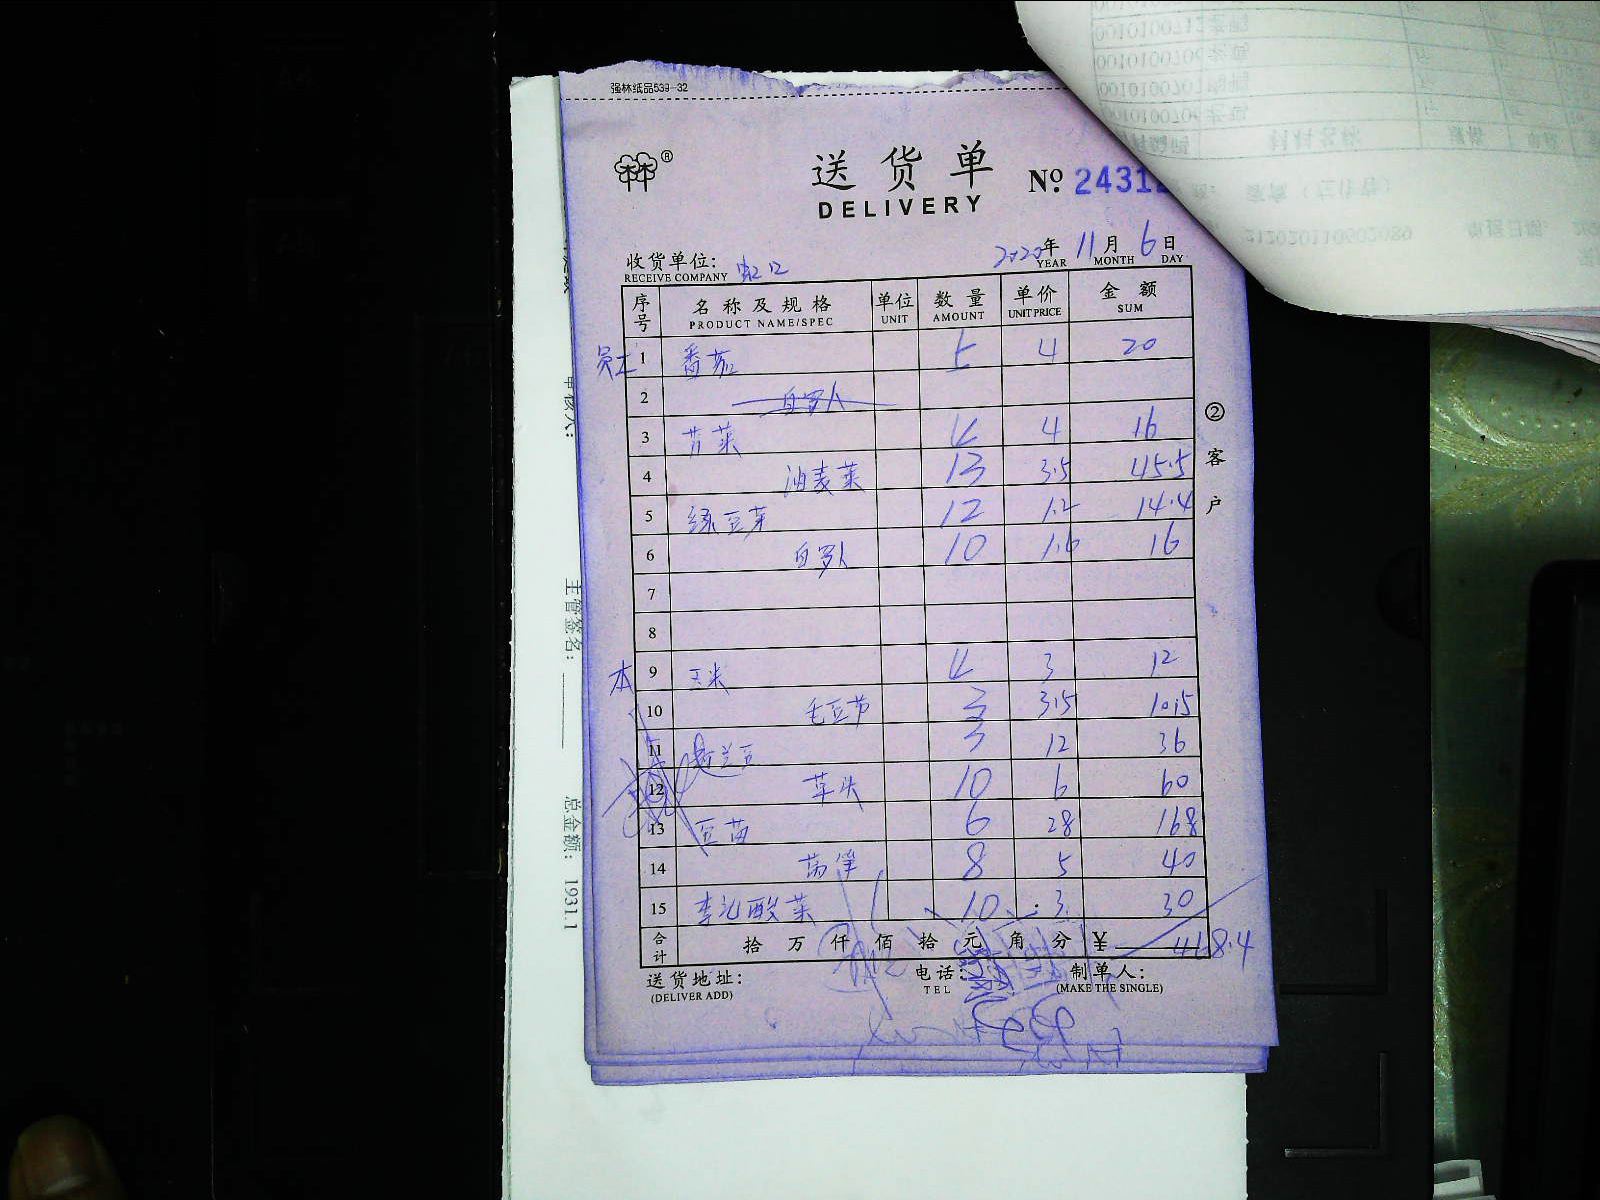 强林纸品539-32
送货单
№ 2431
DELIVERY
收货单位: 虹口
RECEIVE COMPANY
2020年 11月 6日
YEAR MONTH DAY
序号 名称及规格 单位 数量 单价 金额
PRODUCT NAME/SPEC UNIT AMOUNT UNIT PRICE SUM
员工 1 番茄 5 4 20
2
3 芹菜 4 4 16
4 油麦菜 13 3.5 45.5
5 绿豆芽 12 1.2 14.4
6 白萝卜 10 1.6 16
7
8
本 9 玉米 4 3 12
10 毛豆节 3 3.5 10.5
11 荷兰豆 3 12 36
12 草头 10 6 60
13 豆苗 6 28 168
14 莴笋 8 5 40
15 酸菜 10 3 30
合计 拾万仟佰拾元角分 ¥ 468.4
送货地址: 电话: 制单人:
(DELIVER ADD) TEL (MAKE THE SINGLE)
②客户
主管签名:
总金额: 1931.1